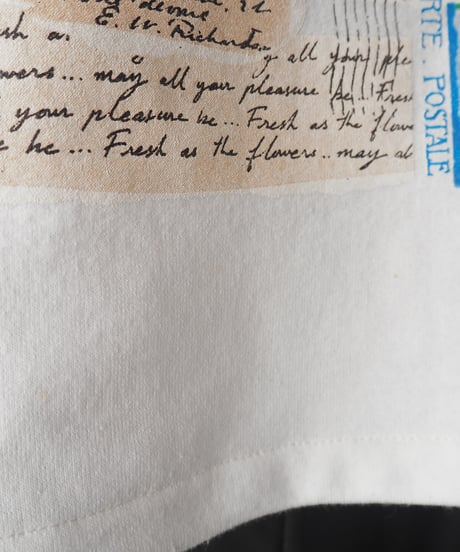 E. W. Richardson
all your
may all your pleasure be... Fresh
your pleasure be... Fresh as the flowe
be... Fresh as the flowers.. may al
POSTALE